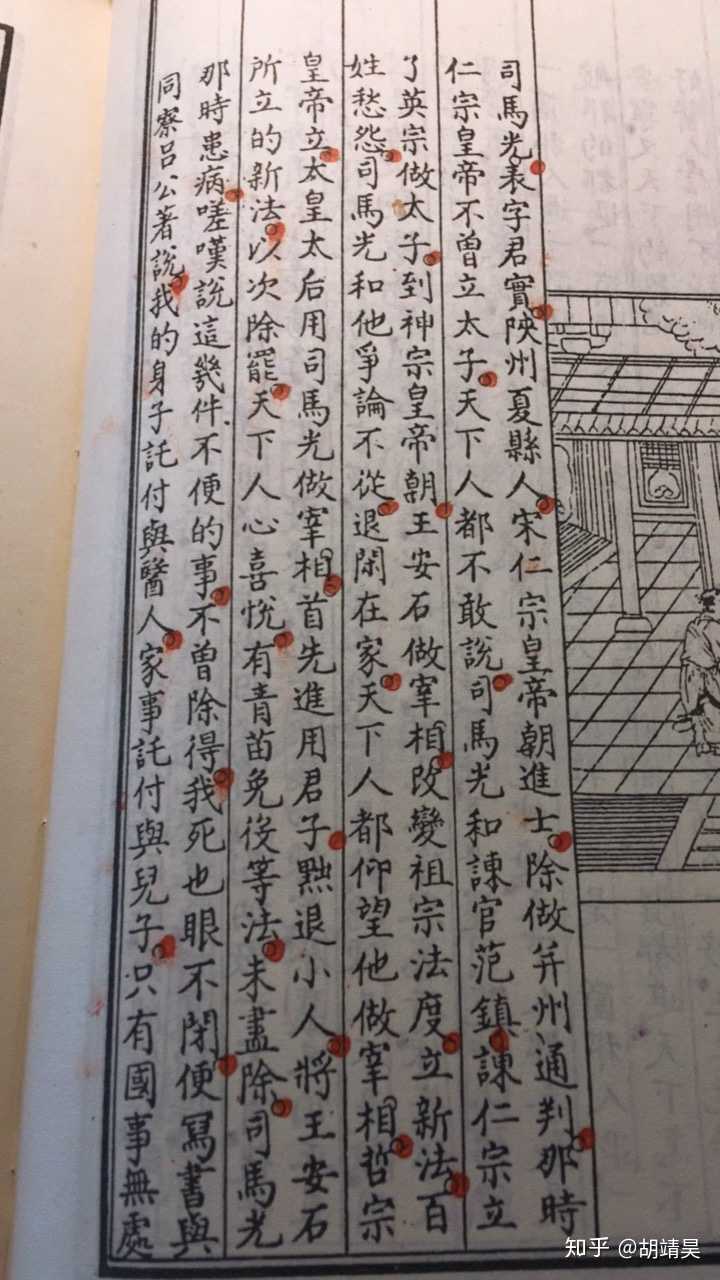 司馬光。表字君實。陝州夏縣人。宋仁宗皇帝朝進士。除做并州通判。那時
仁宗皇帝不曾立太子。天下人都不敢說。司馬光和諫官范鎮。諫仁宗立
了英宗做太子。到神宗皇帝朝。王安石做宰相。改變祖宗法度。立新法。百
姓愁怨。司馬光和他爭論不從。退閑在家。天下人都仰望他做宰相。哲宗
皇帝立。太皇太后用司馬光做宰相。首先進用君子。黜退小人。將王安石
所立的新法。以次除罷。天下人心喜悅。有青苗免役等法。未盡除。司馬光
那時患病。嗟嘆說這幾件不便的事。不曾除得。我死也眼不閉。便寫書與
同寮呂公著說。我的身子託付與醫人。家事託付與兒子。只有國事無處
知乎 @胡靖昊